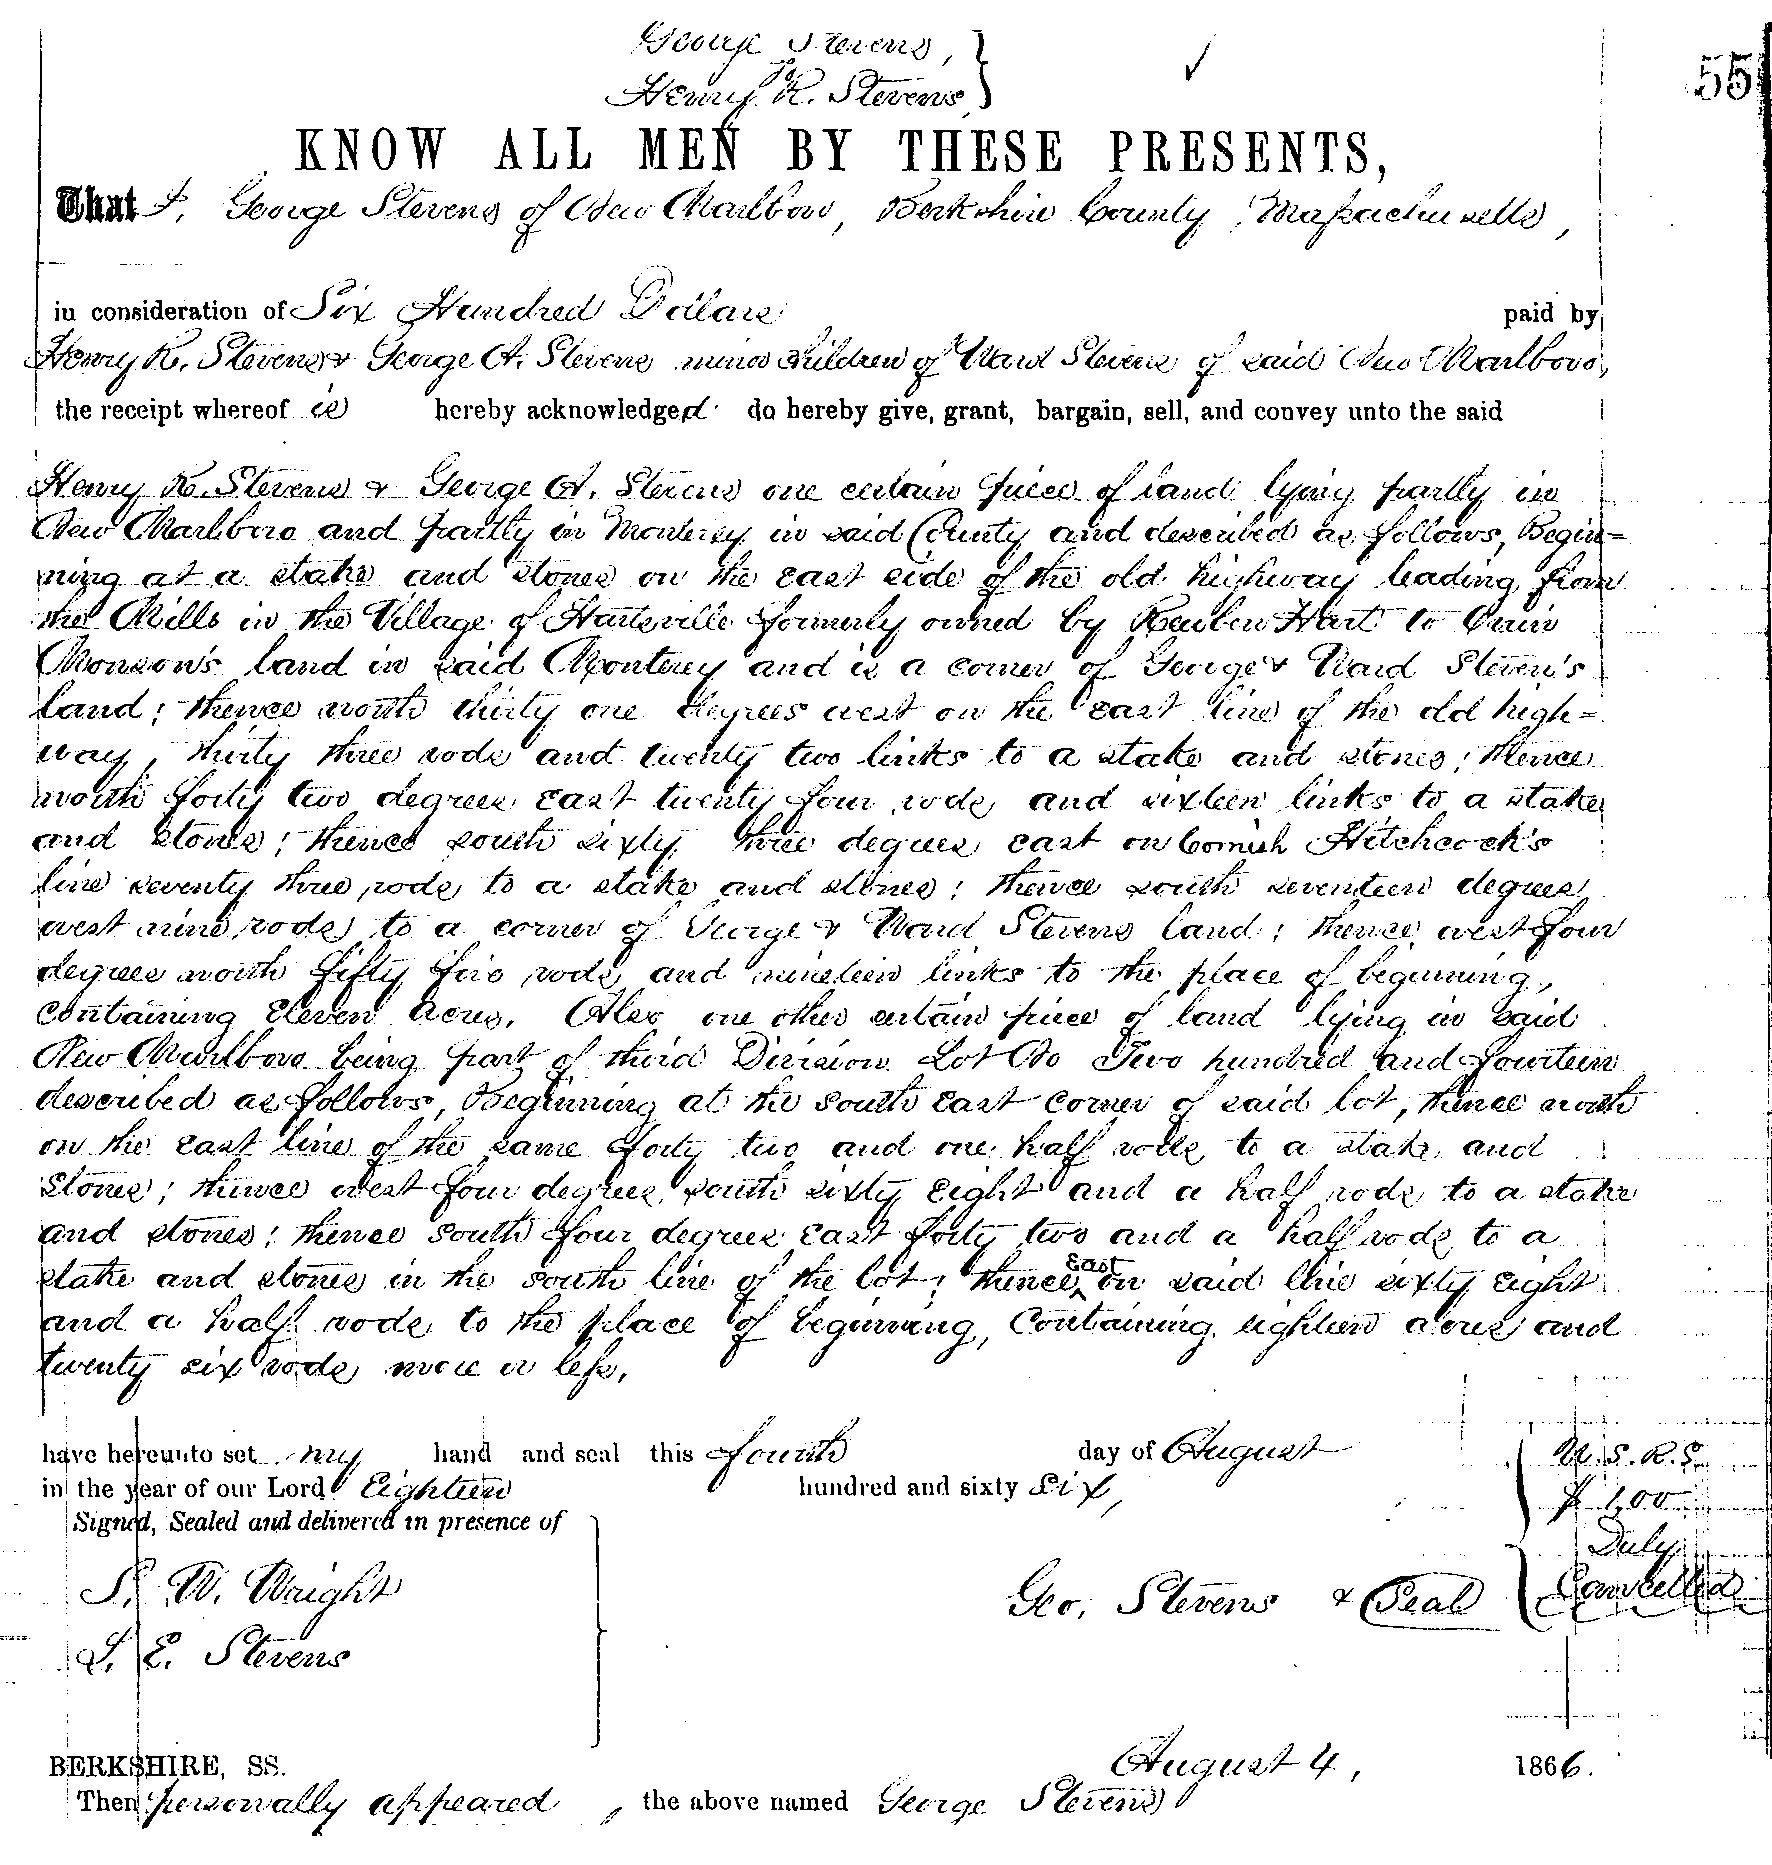 George Stevens,
to
Henry R. Stevens,
55
KNOW ALL MEN BY THESE PRESENTS,
That I, George Stevens of New Marlboro, Berkshire County, Massachusetts,
in consideration of Six Hundred Dollars paid by
Henry R. Stevens & George A. Stevens minor children of Ward Stevens of said New Marlboro,
the receipt whereof is hereby acknowledged do hereby give, grant, bargain, sell, and convey unto the said
Henry R. Stevens & George A. Stevens one certain piece of land lying partly in
New Marlboro and partly in Monterey in said County and described as follows, Begin=
ning at a stake and stones on the east side of the old highway leading from
the Mills in the Village of Hartsville formerly owned by Reuben Hart to Orrin
Monson's land in said Monterey and is a corner of George & Ward Steven's
land; thence north thirty one degrees west on the east line of the old high=
way, thirty three rods and twenty two links to a stake and stones; thence
north forty two degrees east twenty four rods and sixteen links to a stake
and stones; thence south sixty three degrees east on Cornish Hitchcock's
line seventy three rods to a stake and stones; thence south seventeen degrees
west nine rods to a corner of George & Ward Stevens land; thence west four
degrees north fifty five rods and nineteen links to the place of beginning,
containing Eleven acres. Also one other certain piece of land lying in said
New Marlboro being part of third Division Lot No Two hundred and fourteen
described as follows, Beginning at the south east corner of said lot, thence north
on the east line of the same forty two and one half rods to a stake and
stones; thence west four degrees south sixty eight and a half rods to a stake
and stones; thence south four degrees east forty two and a half rods to a
stake and stones in the south line of the lot; thence East on said line sixty eight
and a half rods to the place of beginning, Containing eighteen acres and
twenty six rods more or less.
have hereunto set my hand and seal this fourth day of August
in the year of our Lord Eighteen hundred and sixty six,
Signed, Sealed and delivered in presence of
S. W. Wright
S. E. Stevens
Geo. Stevens & Seal
U. S. R. S.
$ 1,00
Duly
Cancelled
BERKSHIRE, SS. August 4, 1866.
Then personally appeared, the above named George Stevens